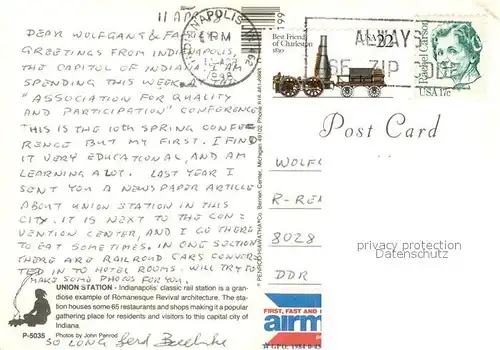 11 APR
INDIANAPOLIS
PM
11 APR
1988
ALWAYS
USE ZIP CODE
Best Friend
of Charleston
1830
USA 22
Rachel Carson
USA 17c
Post Card
DEAR WOLFGANG &
GREETINGS FROM INDIANAPOLIS,
THE CAPITOL OF INDIANA. I AM
SPENDING THIS WEEK AT THE
"ASSOCIATION FOR QUALITY
AND PARTICIPATION" CONFERENCE
THIS IS THE 10TH SPRING CONFE-
RENCE BUT MY FIRST. I FIND
IT VERY EDUCATIONAL, AND AM
LEARNING A LOT. LAST YEAR I
SENT YOU A NEWSPAPER ARTICLE
ABOUT UNION STATION IN THIS
CITY. IT IS NEXT TO THE CON-
VENTION CENTER, AND I GO THERE
TO EAT SOMETIMES. IN ONE SECTION
THERE ARE RAILROAD CARS CONVER-
TED IN TO HOTEL ROOMS. WILL TRY TO
MAKE SOME PHOTOS FOR YOU.
UNION STATION - Indianapolis' classic rail station is a gran-
diose example of Romanesque Revival architecture. The sta-
tion houses some 65 restaurants and shops making it a popular
gathering place for residents and visitors to this capital city of
Indiana.
P-5035
Photos by John Penrod
SO LONG Gerd
© PENROD/HIAWATHA Co. Berrien Center, Michigan 49102
WOLFG
R-REN
8028
DDR
privacy protection
Datenschutz
FIRST, FAST AND
airm
☆ GPO: 1984 0-45